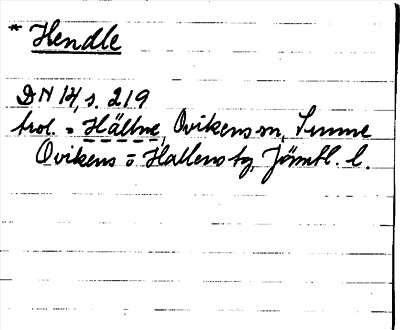 * Hendle
DN 14, s. 219
trol. = Hällne, Ovikens sn,
Ovikens o Hallens tg, Jämtl. l.